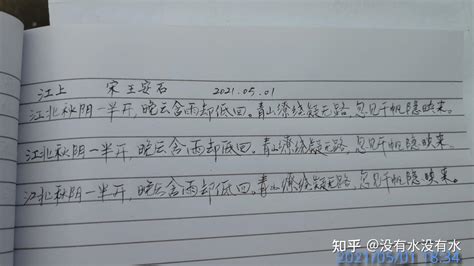 江上 宋 王安石 2021.05.01
江北秋阴一半开,晚云含雨却低回。青山缭绕疑无路,忽见千帆隐映来。
江北秋阴一半开,晚云含雨却低回。青山缭绕疑无路,忽见千帆隐映来。
江北秋阴一半开,晚云含雨却低回。青山缭绕疑无路,忽见千帆隐映来。
知乎 @没有水没有水
2021/05/01 18:34